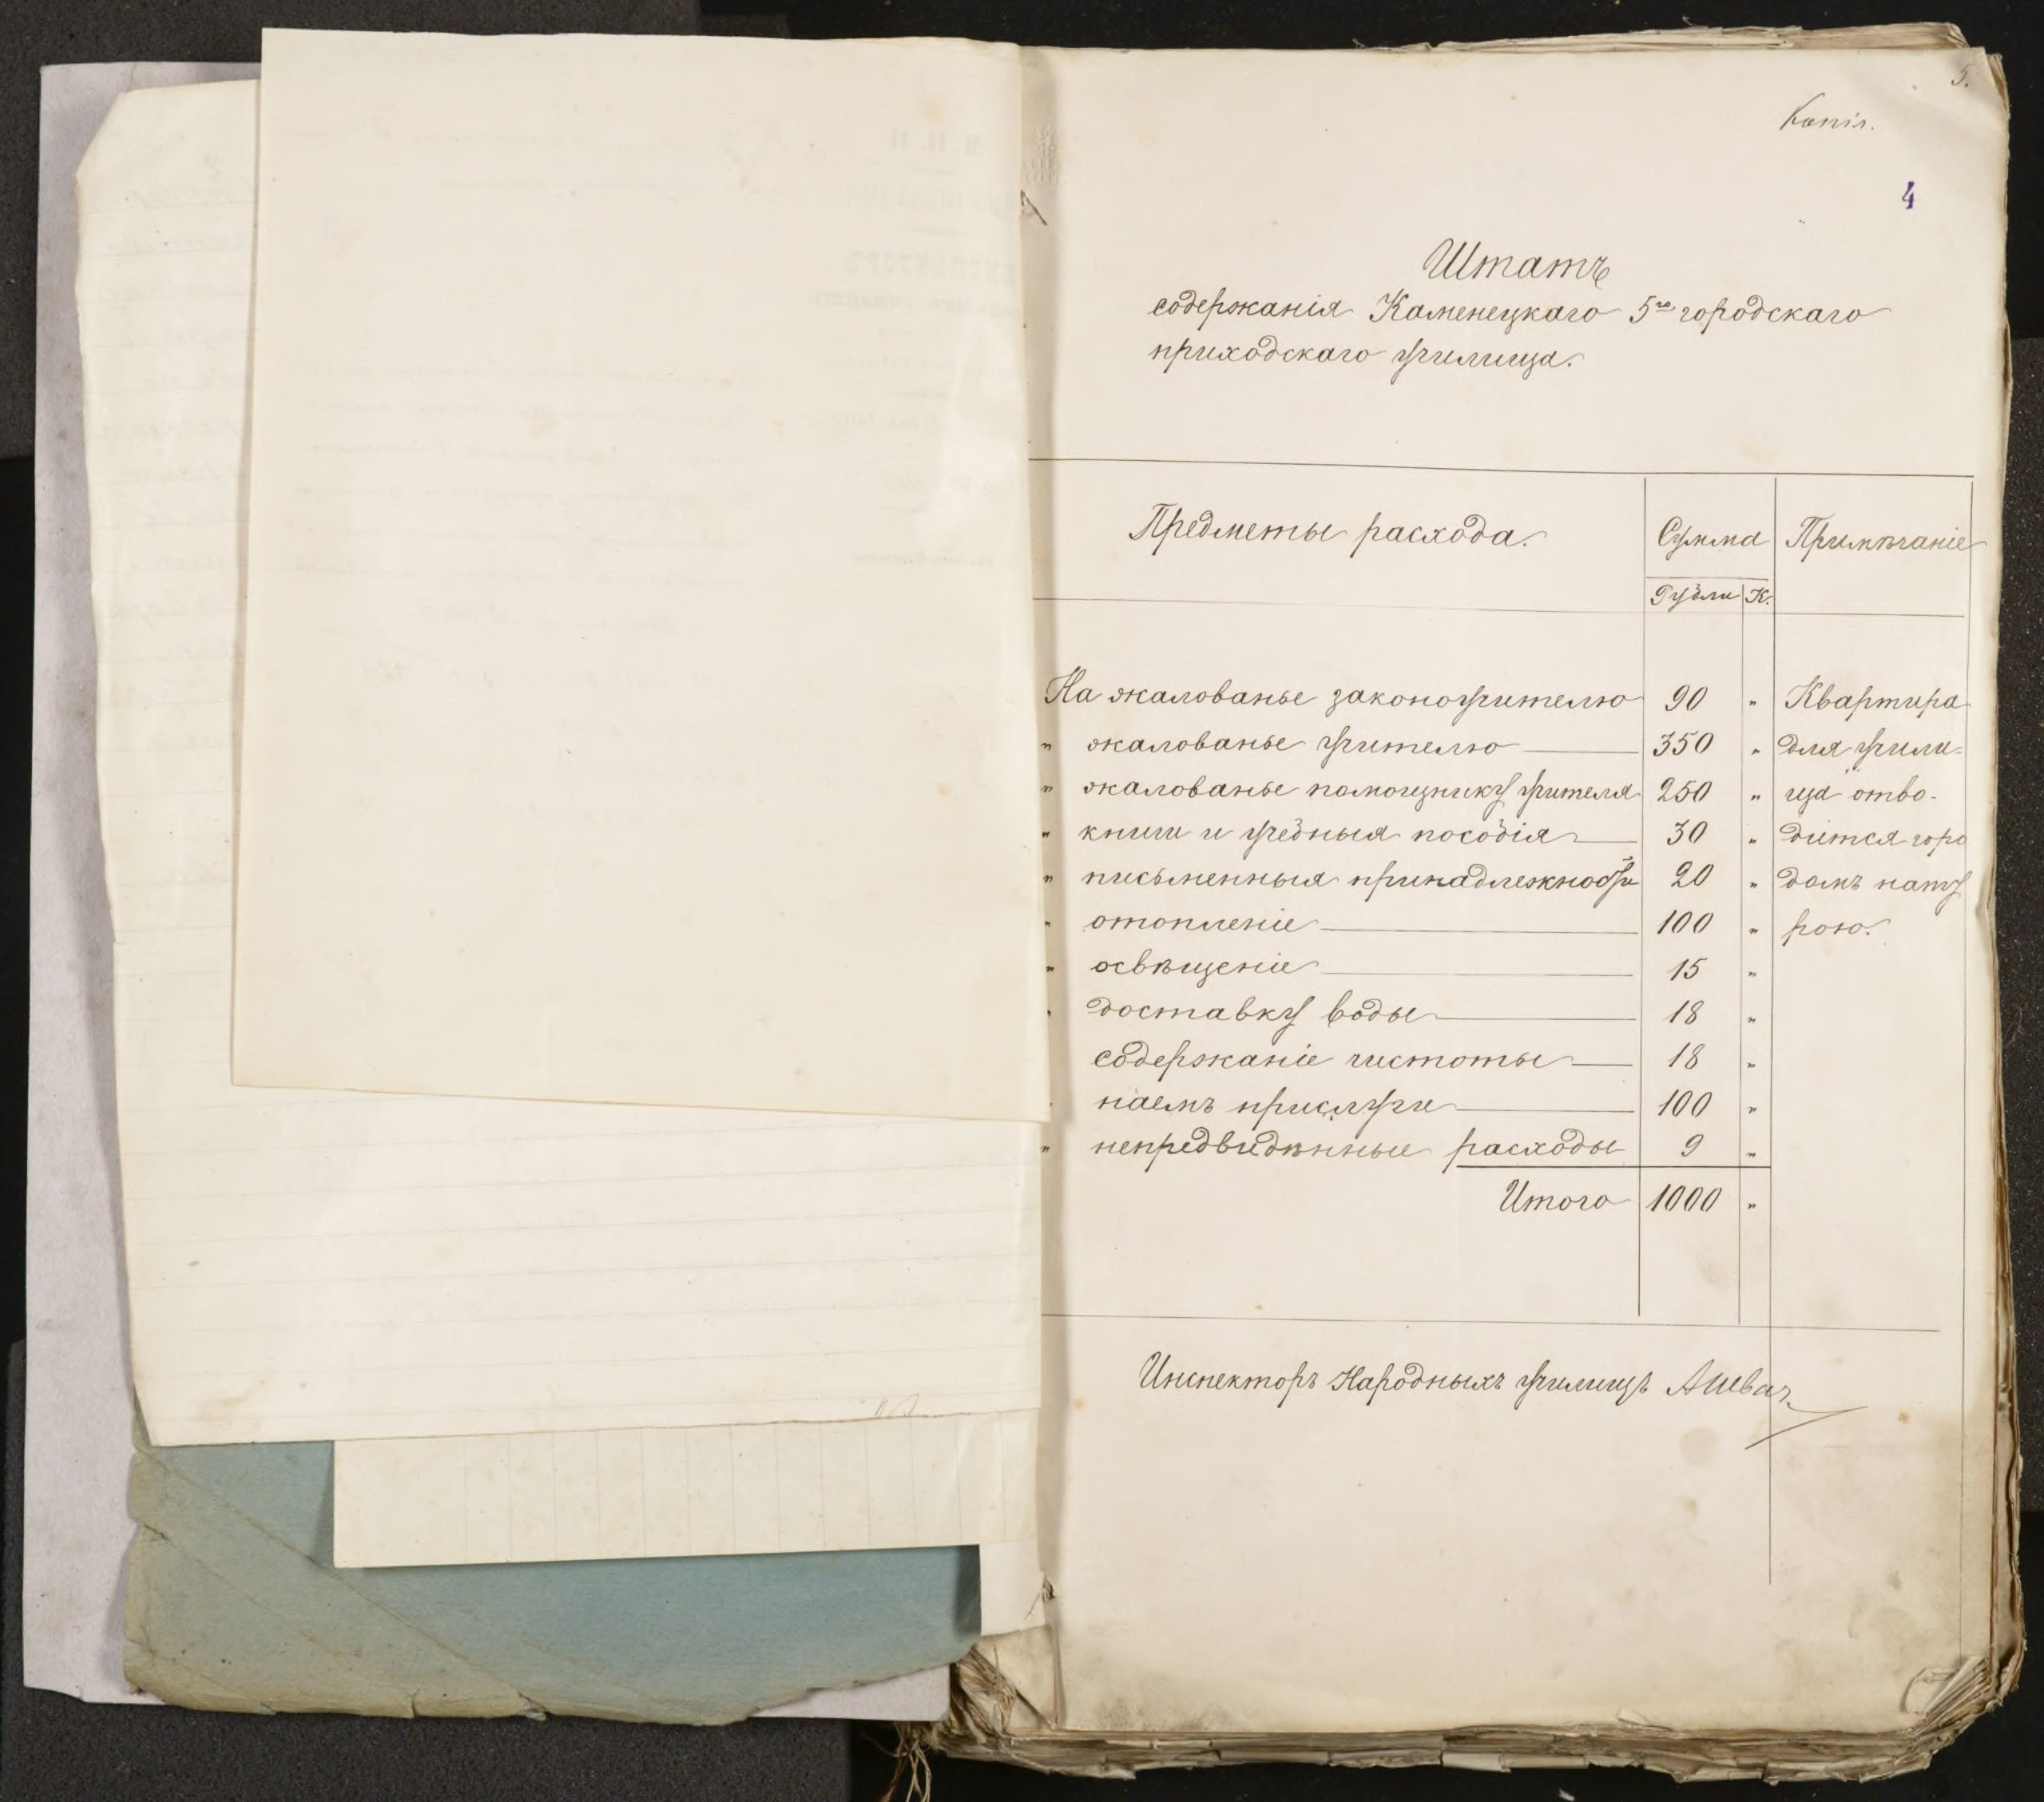 5.
Копія.
4
Штатъ
содержанія Каменецкаго 5го городскаго
приходскаго училища.
Предметы расхода. Сумма Примѣчаніе
Рубли К.
На жалованье законоучителю 90 " Квартира
" жалованье учителю 350 " для учили-
" жалованье помощнику учителя 250 " ща отво-
" книги и учебныя пособія 30 " дится горо
" письменныя принадлежности 20 " домъ нату
" отопленіе 100 " рою.
" освѣщеніе 15 "
" доставку воды 18 "
содержаніе чистоты 18 "
" наемъ прислуги 100 "
" непредвидѣнные расходы 9 "
Итого 1000 "
Инспекторъ Народныхъ училищъ